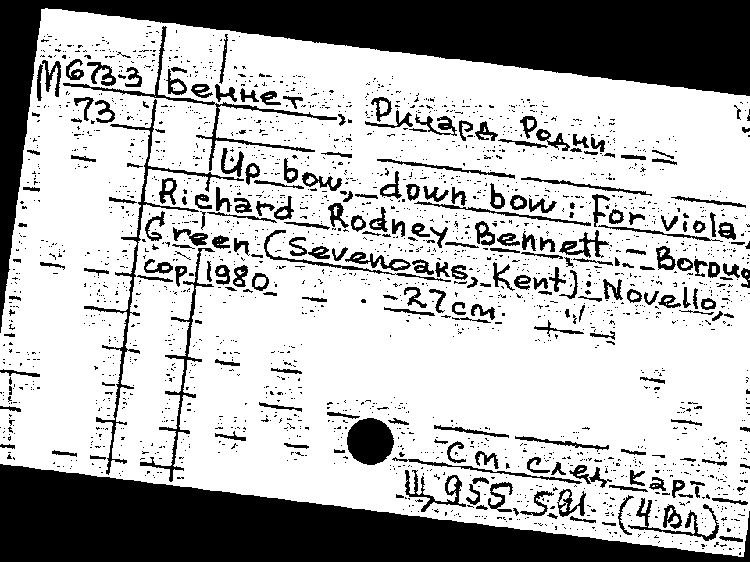 М 673-3 Беннет, Ричард Родни
73
Up bow, down bow: For viola
Richard Rodney Bennett. — Boroug
Green (Sevenoaks, Kent): Novello,
cop. 1980. - 27 cm.
См. след. карт.
III, 955.581 (4 Вл).